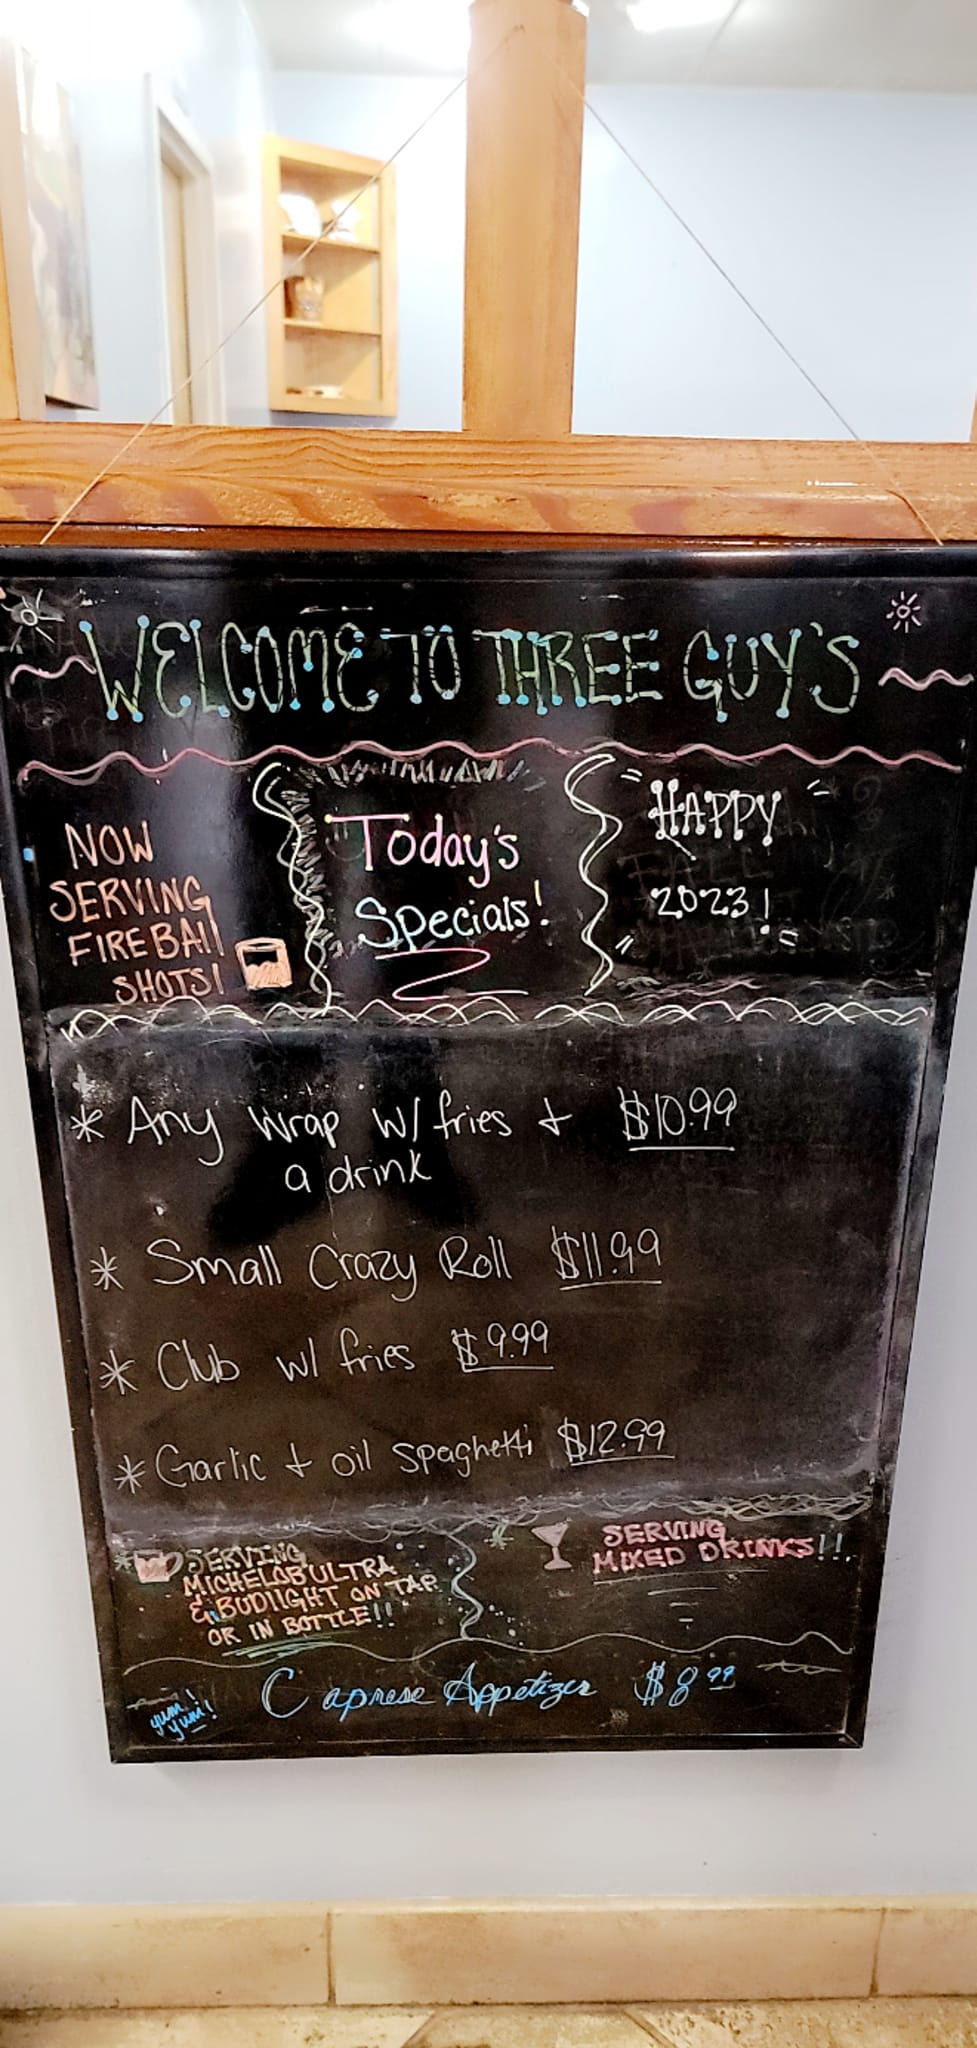 WELCOME TO THREE GUY'S
NOW
SERVING
FIREBAll
SHOTS!
Today's
Specials!
HAPPY
2023!
* Any Wrap w/ fries + $10.99
a drink
* Small Crazy Roll $11.99
* Club w/ fries $9.99
* Garlic + oil spaghetti $12.99
SERVING
MICHELOB ULTRA
& BUDLIGHT ON TAP
OR IN BOTTLE!!
SERVING
MIXED DRINKS!!!
yum!
yum!
Caprese Appetizer $8.99